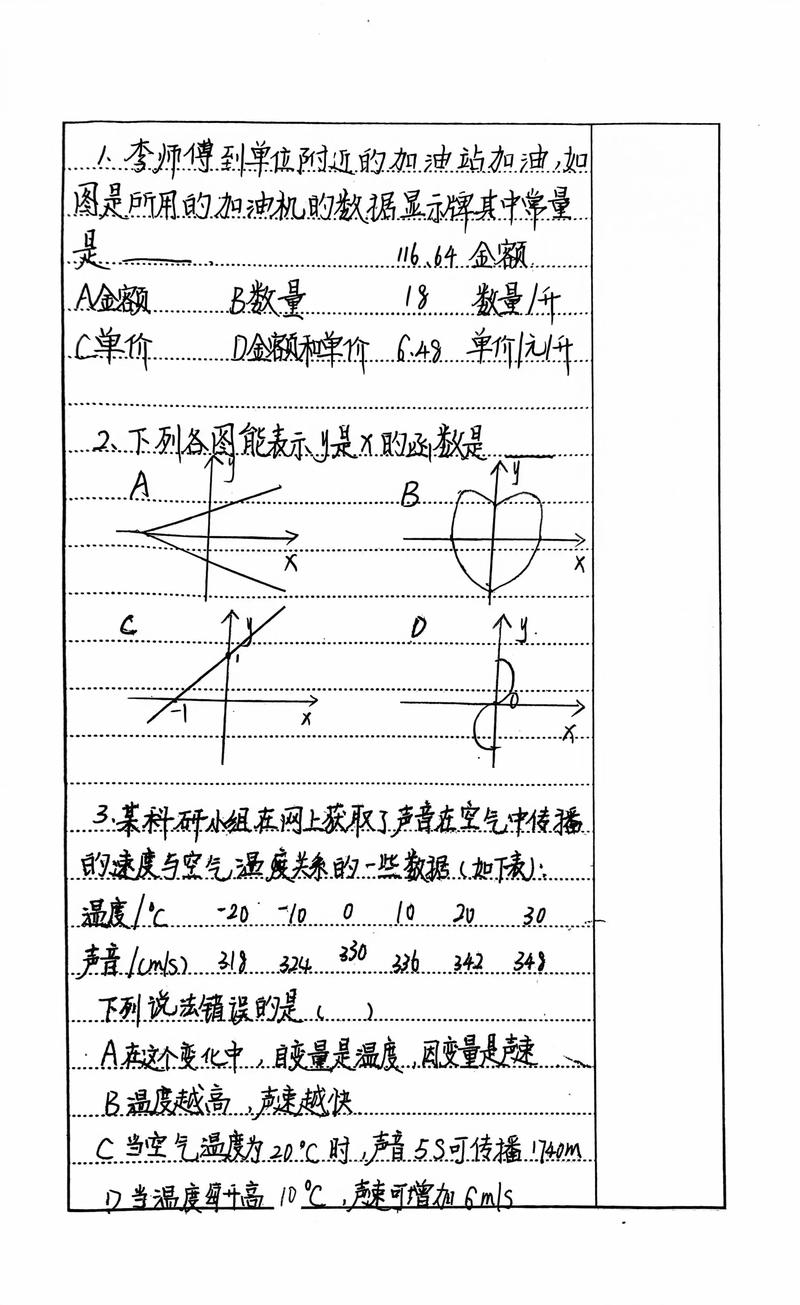 1、李师傅到单位附近的加油站加油,如
图是所用的加油机的数据显示牌其中常量
是 ____ . 116.64 金额
A金额 B数量 18 数量/升
C单价 D金额和单价 6.48 单价/元/升
2、下列各图能表示y是x的函数是 ____
A y B y
x x
C y D y.
1
-1 x 0 x
3、某科研小组在网上获取了声音在空气中传播
的速度与空气温度关系的一些数据(如下表):
温度/℃ -20 -10 0 10 20 30
声音/(m/s) 318 324 330 336 342 348
下列说法错误的是( )
A在这个变化中,自变量是温度,因变量是声速
B温度越高,声速越快
C当空气温度为20℃时,声音5S可传播1740m
D当温度每升高10℃,声速可增加6m/s